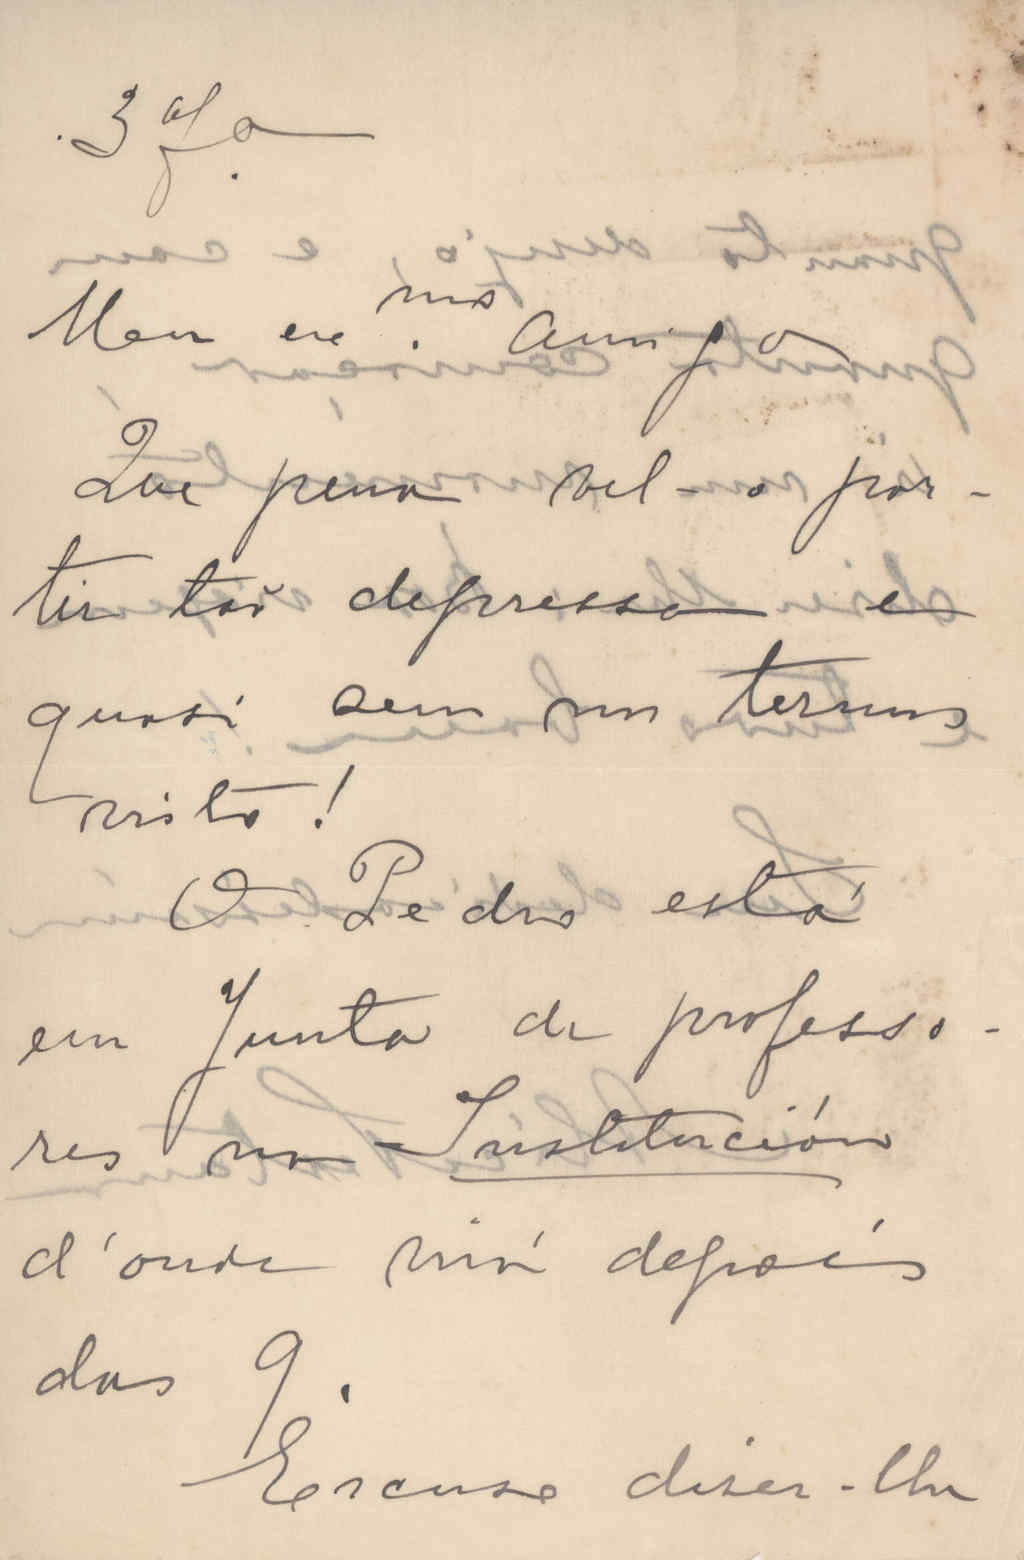 3ª fª
Meu exmo. Amigo
Que pena vel-o par-
tir tão depressa e
quasi sem nos termos
visto!
O Pedro está
em Junta de professo-
res na Institución
d'onde virá depois
das 9.
Escuso dizer-lhe